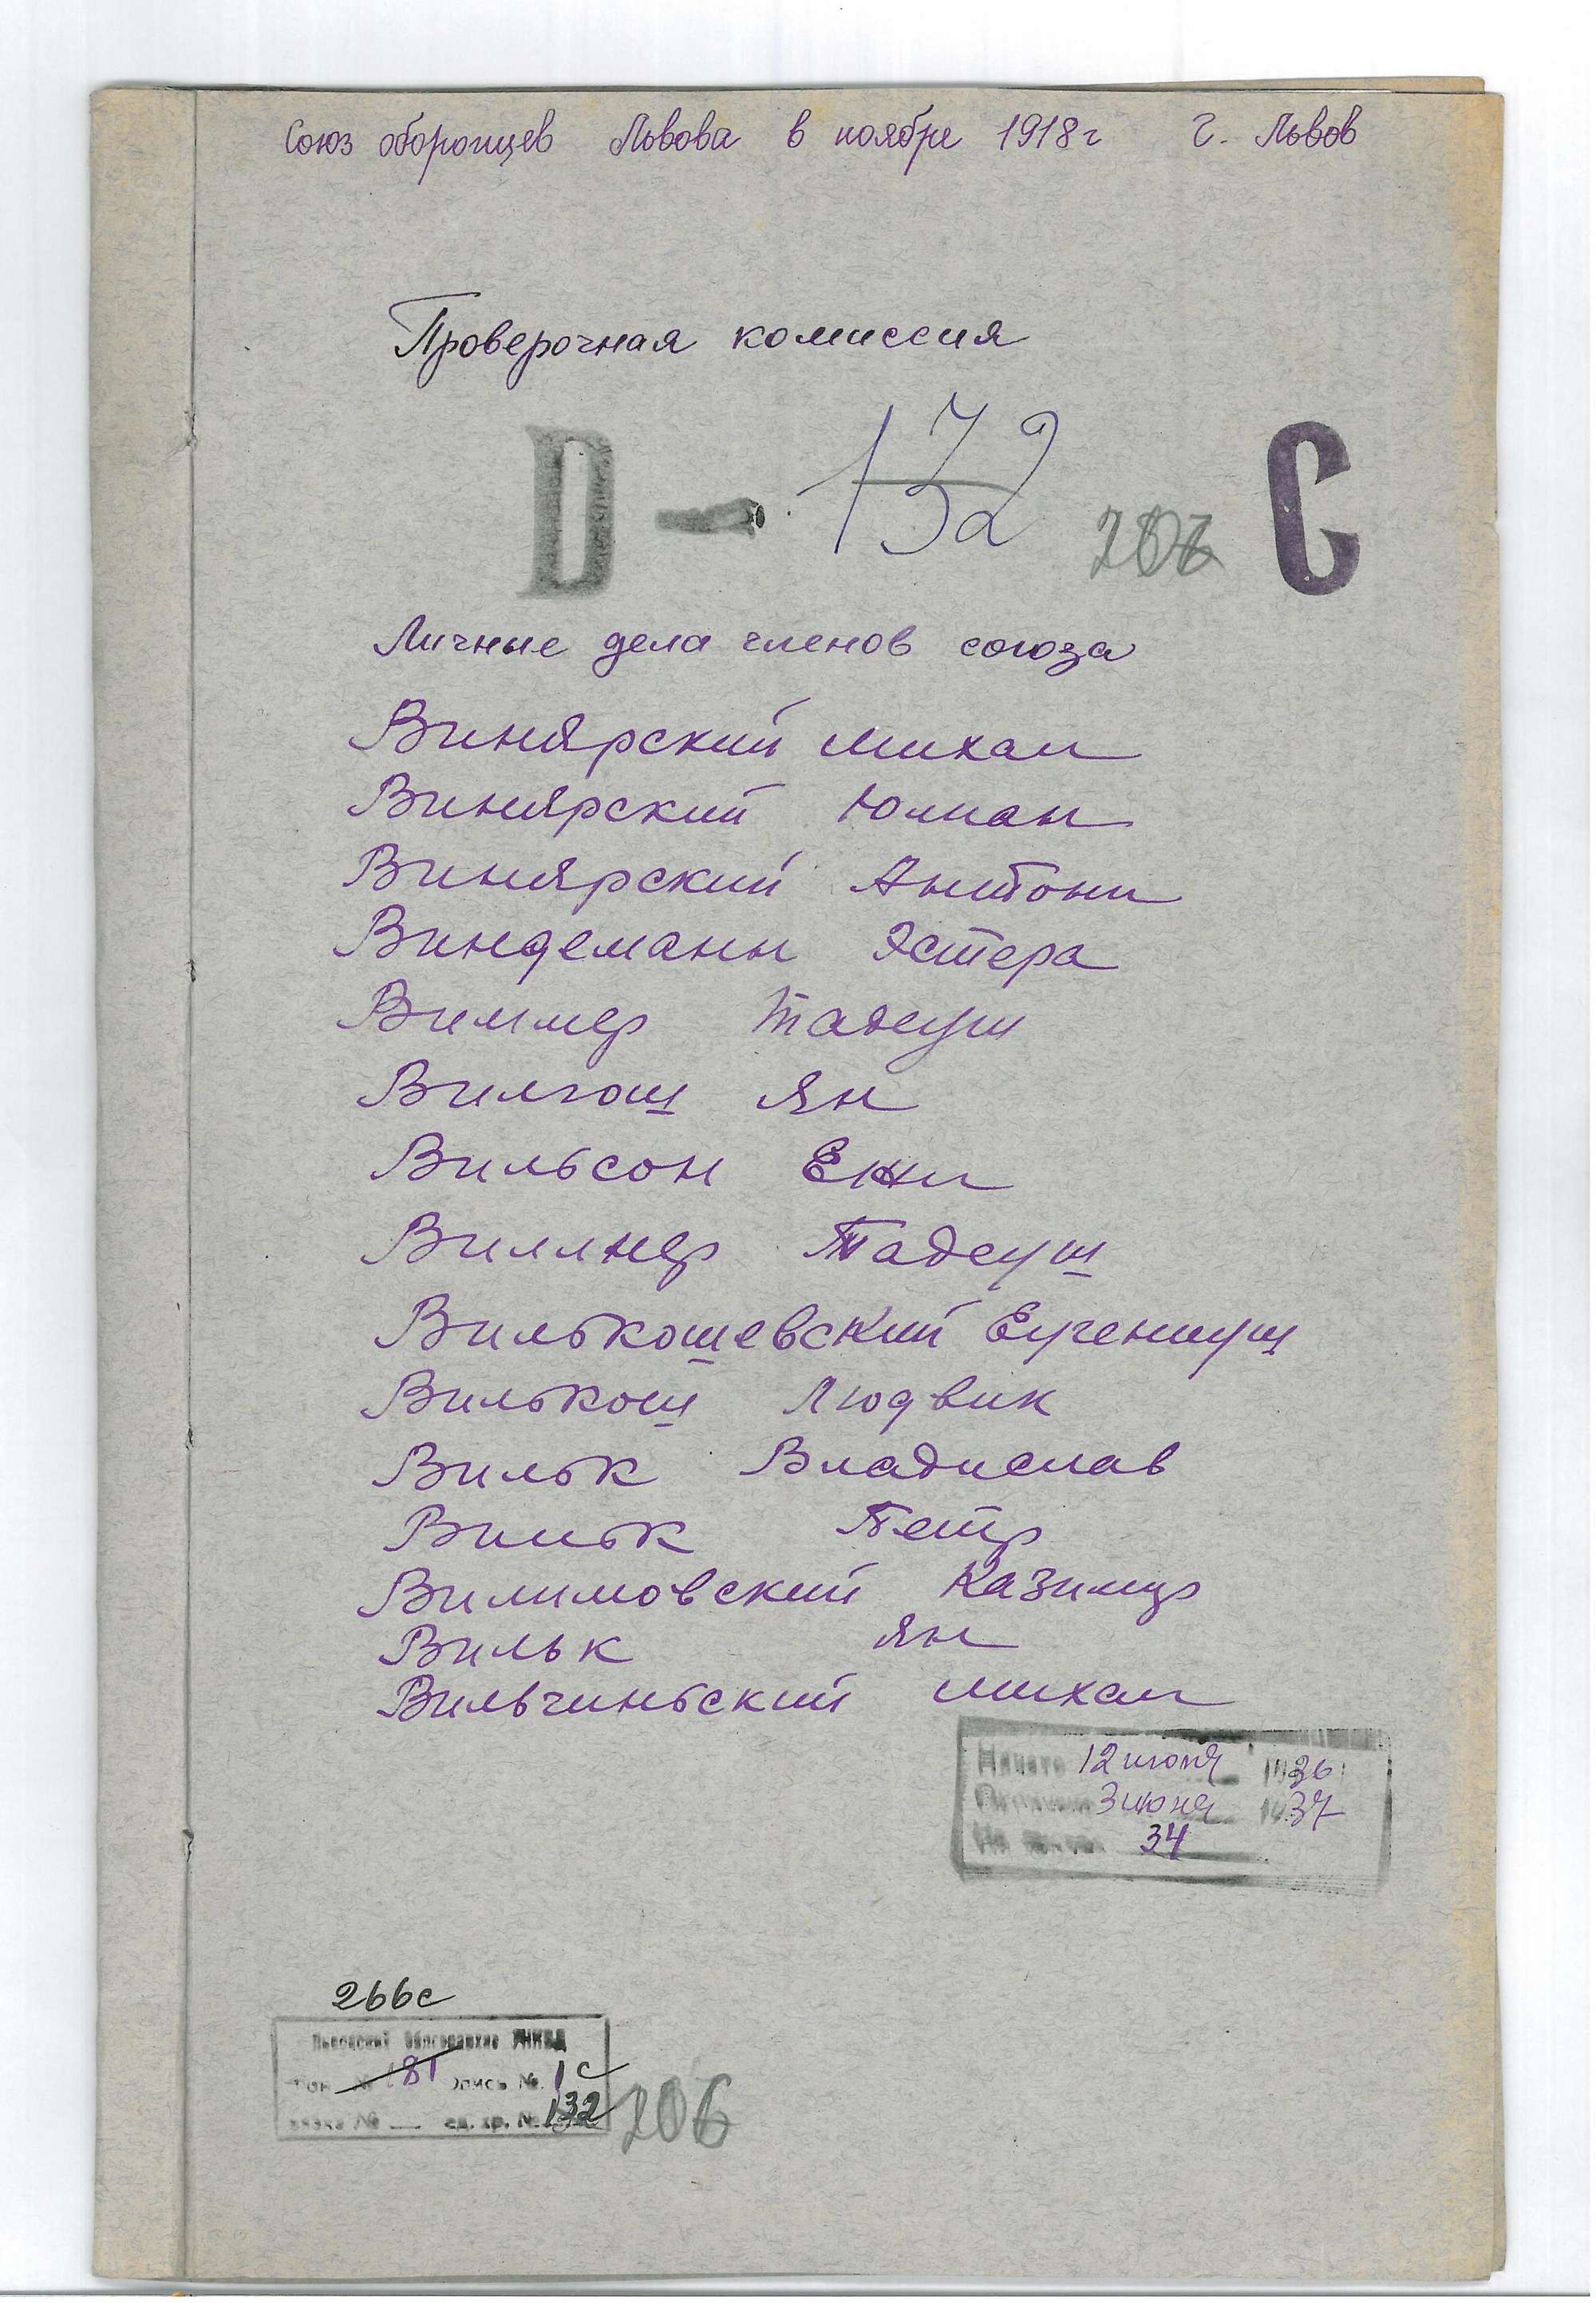 Союз оборонцев Львова в ноябре 1918 г г. Львов
Проверочная комиссия
D - 132 206 С
Личные дела членов союза
Винярский Михал
Винярский Юлиан
Винярский Антони
Виндеманн Эстера
Виммер Тадеуш
Вилгош Ян
Вильсон Ежи
Виллнер Тадеуш
Вилькошевский Еугениуш
Вилькош Людвик
Вильк Владислав
Вильк Петр
Вилимовский Казимир
Вильк Ян
Вильчиньский Михал
Начато 12 июня 1936
3 июня 1937
34
266с
Львовский Облгосархив УНКВД
Фон № 181 Опись № 1 с
вязка № — ед. хр. № 132 206